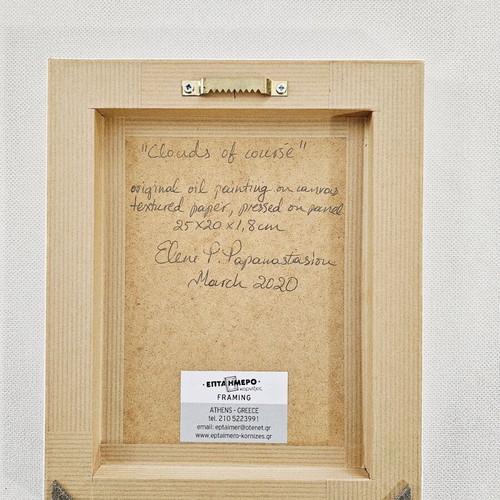 "Clouds of course"
original oil painting on canvas
textured paper, pressed on panel
25x20x1,8cm
Eleni P. Papanastasiou
March 2020
·ΕΠΤΑΗΜΕΡΟ·
κορνίζες
FRAMING
ATHENS - GREECE
tel. 210 5223991
email: eptaimer@otenet.gr
www.eptaimero-kornizes.gr